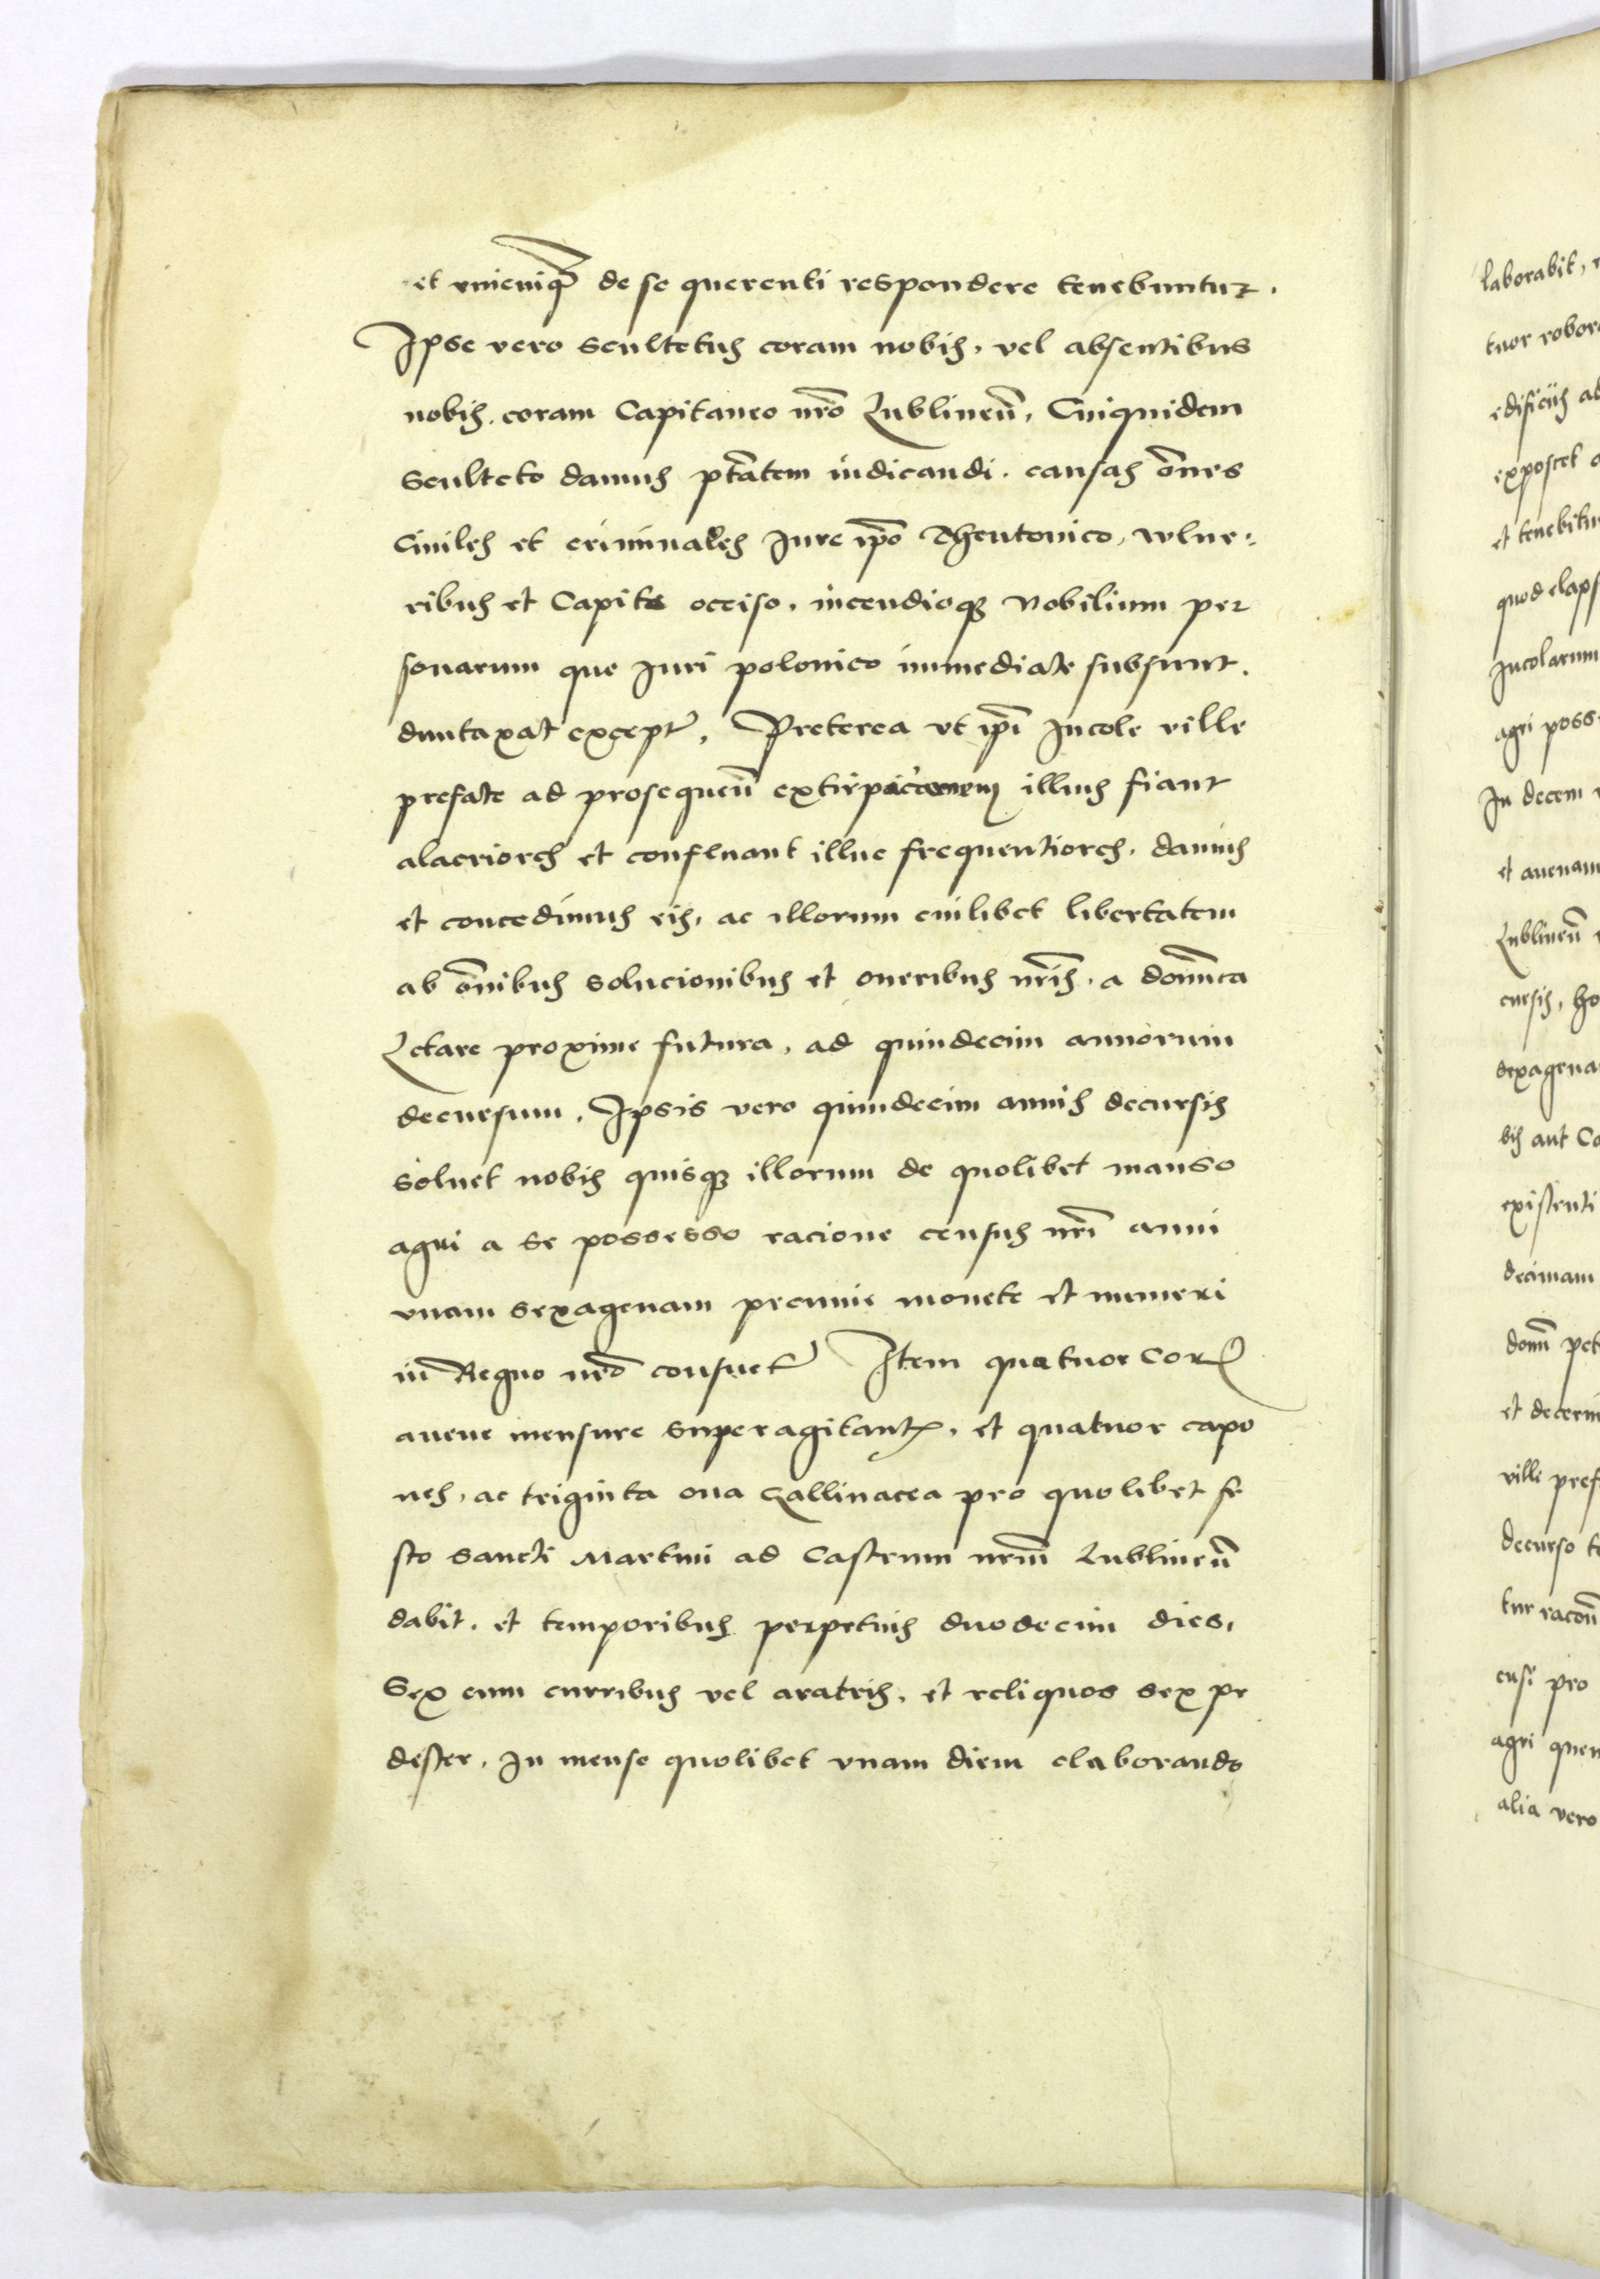 et unicuiq̃ de se querenti respondere tenebuntur.
Ipse vero scultetus coram nobis, vel absentibus
nobis coram Capitaneo nr̃o Lublineñ, Cuiquidem
sculteto damus ptãtem iudicandi causas oẽs
Ciuiles et criminales Iure ip̃o Theutonico, vlne-
ribus et Capite occiso, incendioq3 Nobilium per
sonarum que Iuri polonico immediate subsunt.
duntaxat except̃, Preterea vt ip̃i Incole ville
prefate ad prosequeñ extirpac̃onem illius fiant
alacriores et confluant illuc frequentiores, damus
et concedimus eis, ac illorum cuilibet libertatem
ab oĩbus solucionibus et oneribus nr̃is, a dom̃ca
Letare proxime futura, ad quindecim annorum
decursum, Ipsis vero quindecim annis decursis
soluet nobis quisq3 illorum de quolibet manso
agri a se possesso racione census nr̃i anni
vnam sexagenam pecunie monete et numeri
in Regno nr̃o consuet̃ Item quatuor Cor̃
auene mensure superagitant̃, et quatuor capo
nes, ac triginta oua gallinacea pro quolibet fe
sto sancti Martini ad Castrum nr̃m Lublineñ
dabit, et temporibus perpetuis duodecim dies,
Sex cum curribus vel aratris, et reliquos sex pe
dester, In mense quolibet vnam diem elaborando
laborabit,
tuor
edificiis ad
exposcet
et tenebitur
quod
Incolarum
agri
In decem
et auenam
Lublineñ
sexagena
bis aut
existenti
decimam
pet
et
ville pref
decurso
tur racoñ
pro
agri
alia vero